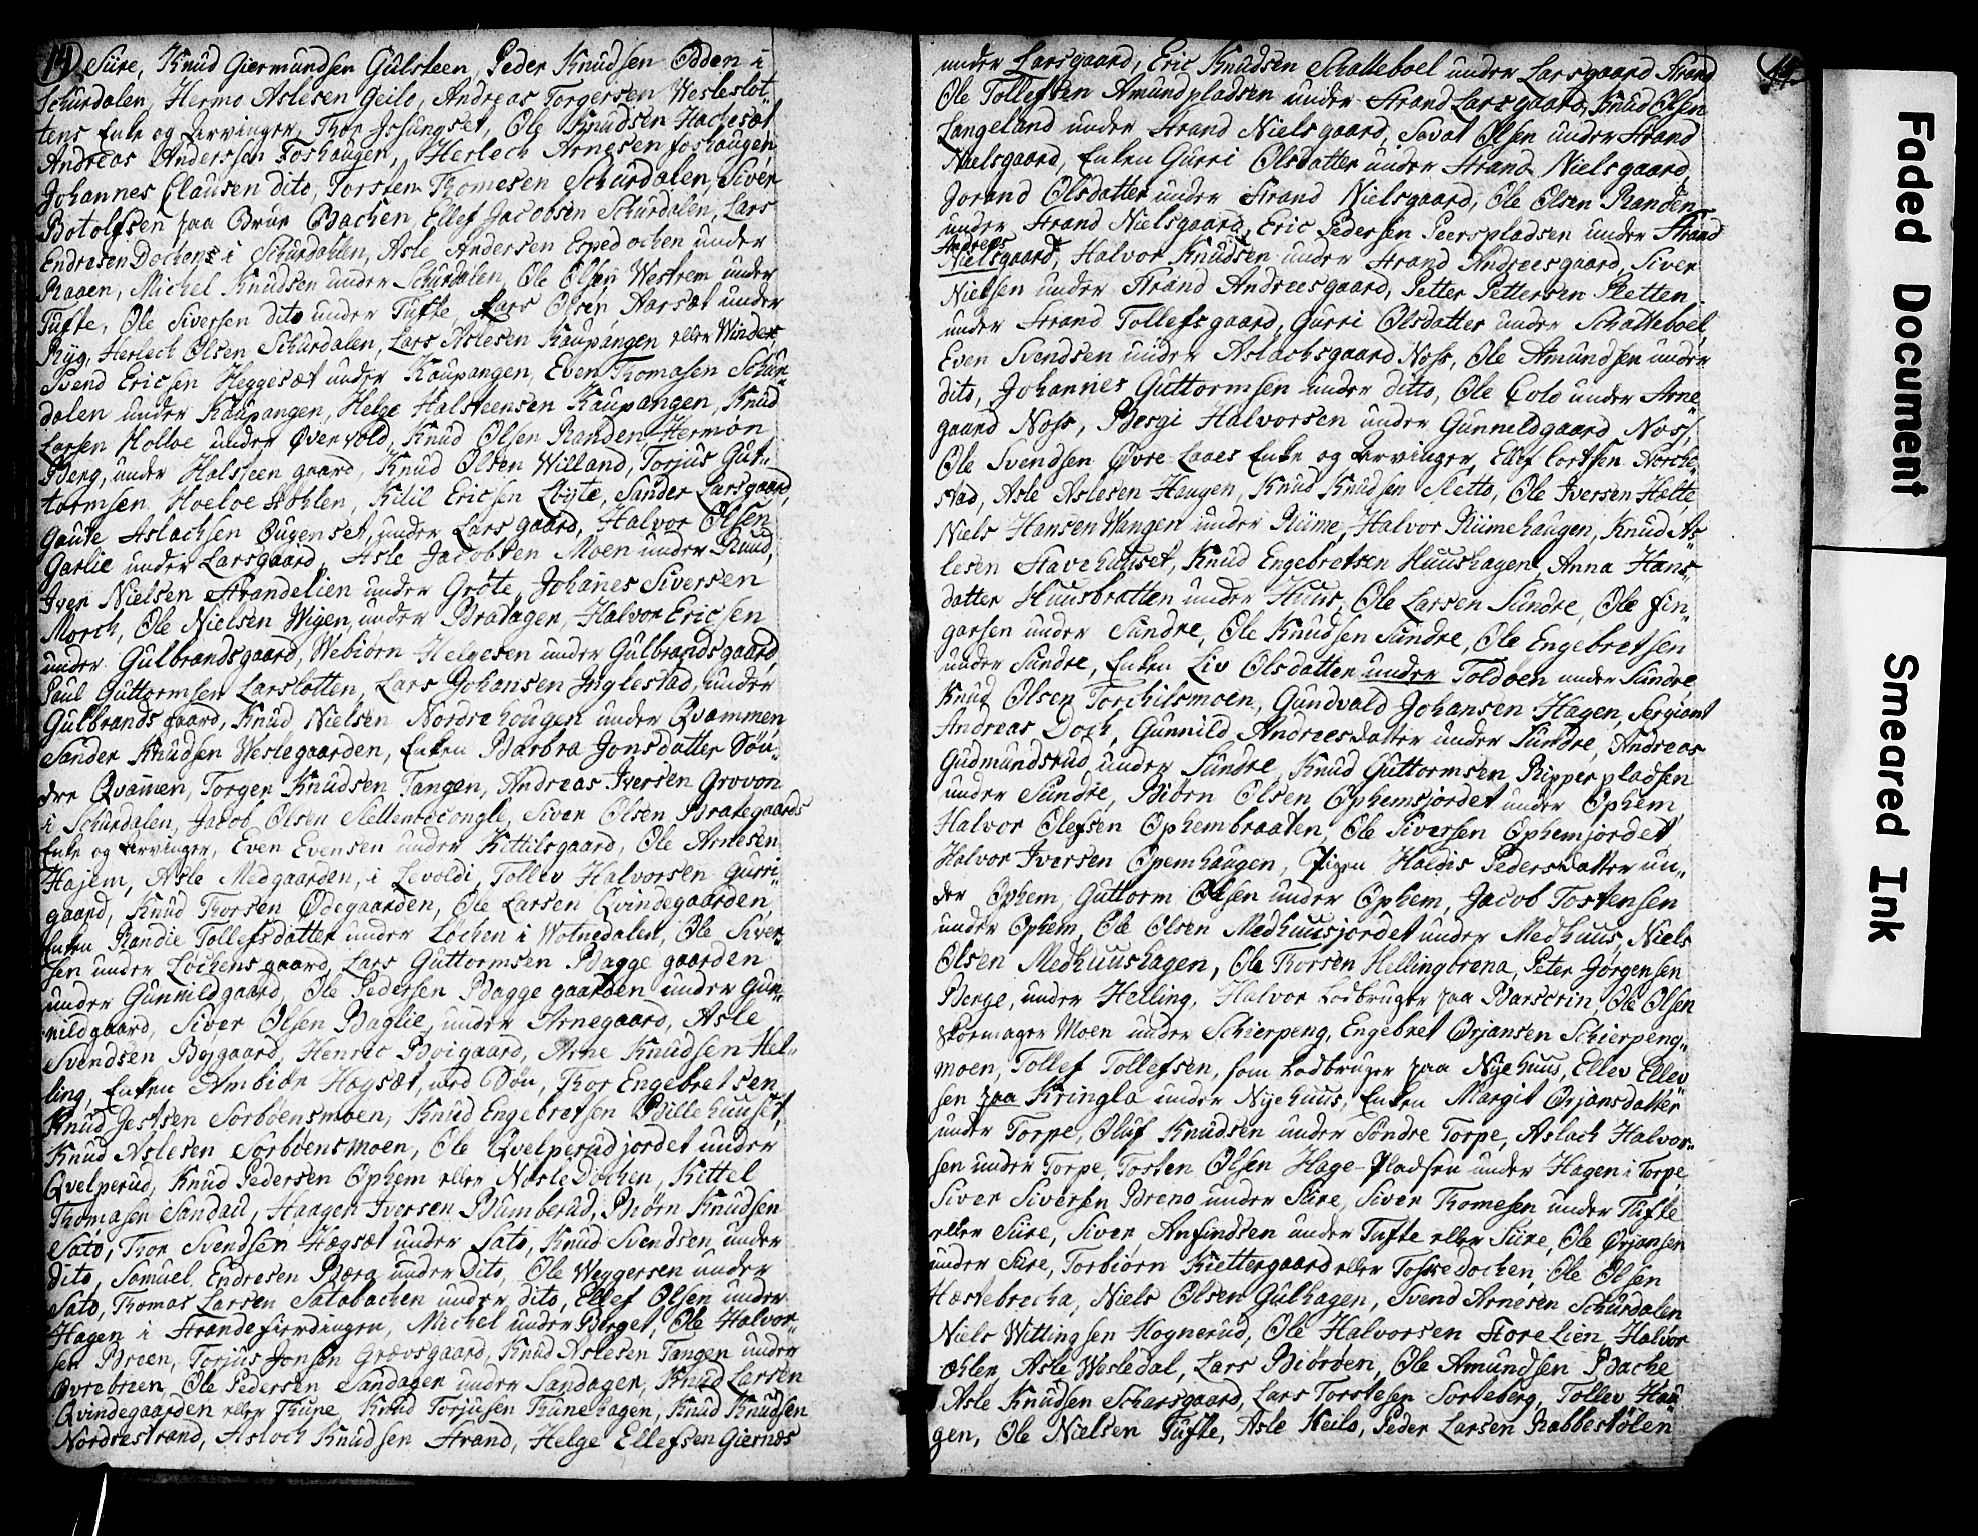 14) Siire, Knud Giermundsen Gulsteen, Peder Knudsen Odden i
Schurdalen, Hermo Aslesen Geilo, Andreas Torgersen Wesleslot-
tens Enke og Arvinger, Thor Jssungset, Ole Knudsen Hachesæt
Andreas Anderssen Foshaugen, Herlech Arnesen foshaugen,
Johannes Clausen dito, Torsten Thomesen Schurdalen, Siver
Botolfsen paa Brue Bachen Ellef Jacobsen Schurdalen, Lars
Endresen Dochens i Schurdahlen, Asle Anderssen Espedochen under
Raaen, Michel Knudsen under Schurdalen, Ole Olsen Westrem under
Tufte, Ole Siversen dito under Tufte Lars Olsen Aarsæt under
Ryg, Herlech Olsen Schurdalen, Lars Aslesen Kaupangen eller Winder
Svend Ericsen Heggesæt under Kaupangen, Even Thomasen Schur-
dalen under Kaupangen, Helge Halsteensen Kaupangen, Knud
Larsen Holloe under Øvervold, Knud Olsen Randen, Hermon
Berg, under Halsteen gaard, Knud Olsen Willand, Torjus Gut-
tormsen, Hoeloe Køhlen, Kilil Ericsen Løyte, Sander Larsgaard,
Gaute Aslachsen Bugenset, under Larsgaard, Halvor Olsen
Garlie under Larsgaard, Asle Jacobsen Moen under Ruud,
Iver Nielsen Strandelien under Grøte, Johanes Siversen
Morch, Ole Nielsen Wigen, under Bratagen, Halvor Ericsen
under Gulbrandsgaard, Webiørn Helgesen under Gulbrandsgaard,
Paul Guttormsen Larslotten, Lars Johansen Inglestad, under
Gulbrands gaard, Knud Nielsen Nordrehougen under Qvammen
Sander Knudsen Weslegaarden, Enken Barbra Jonsdatter Søn-
dre Qvamen, Torger Knudsen Tangen, Andreas Iversen Grovon
i Schurdalen, Jacob Olsen Slettemocongle, Siver Olsen Brategaards
Enke og Arvinger, Even Evensen under Kittilsgaard, Ole Arnesen
Hajem, Asle Medgaarden, i Levoldi, Tollev Halvorsen Gurri-
gaard, Knud Thorsen Ødegaarden, Ole Larsen Qvindegaarden,
Enken Randie Tollefsdatter under Lochen i Wotnedalen, Ole Siver-
sen under Lochens gaard, Lars Guttormsen Bagge gaarden
under Gunnildgaard, Ole Pedersen Bagge gaarden under Gun-
nildgaard, Siver Olsen Baglie, under Arnegaard, Asle
Svendsen Bøygaard, Henric Bøigaard, Arne Knudsen Hel-
ling, Enken Ambiør Hægsæt, med Søn, Thor Engebretsen
Knud Gestsen Sorboensmoen, Knud Engebretsen Billehuuset,
Knud Aslesen Sorboensmoen, Ole Qvelperudjordet under
Qvelperud, Knud Pedersen Ophem eller NosleDochen, Kittel
Thomasen Sandau, Haagen Iversen Bumberud, Biørn Knudsen
Sato, Thor Svendsen Hægsæt under Sato, Knud Svendsen under
dito, Samuel Endresen Berg under Dito, Ole Weggersen under
Sato, Thomas Larsen Satobachen under dito, Ellef Olsen under
Hagen i Strandefierdingen, Michel under Berget, Ole Halvor-
sen Breen, Torjus Jonsen Grævsgaard, Knud Aslesen Tangen under
Øvrebreen, Ole Pedersen Sandager under Sandager, Knud Larsen
Qvindegaarden eller Thune, Knud Torjusen Thunehagen, Knud Knudsen
Nordrestrand, Asloch Knudsen Strand, Helge Ellefsen Giernæs
under Larsgaard, Eric Knudsen Schatteboel under Larsgaard Strand
Ole Tollefsen Amundpladsen under Strand Larsgaard, Knud Olsen
Langeland under Strand Nielsgaard, Savat Olsen under Strand
Nielsgaard, Enken Gurri Olsdatter under Strand Nielsgaard,
Jorand Olsdatter under Strand Nielsgaard, Ole Olsen Randen
under Strand Nielsgaard, Eric Pedersen Peerspladsen under Strand
Andrees
Nielsgaard, Halvor Knudsen under Strand Andreesgaard, Siver
Nielsen under Strand Andreesgaard, Petter Pettersen Pletten
under Strand Tollefsgaard, Gurri Olsdatter under Schatteboel
Even Svendsen under Aslachsgaard Noss, Ole Amundsen under
dito, Johannes Guttormsen under ditto, Ole Colo under Arne
gaard Noss, Bergi Halvorsen under Gunnildgaard Noss,
Ole Svendsen Øvre Laaes Enke og Arvinger, Ellef Cortsen Norche-
stad, Asle Aslesen Haugen, Knud Knudsen Sletto, Ole Iversen Holte
Niels Hansen Wangen under Riime, Halvor Riimehaugen, Knud As-
lesen Stavehuuset, Knud Engebretsen Huushagen, Anna Hans-
datter Huusbratten under Huus, Ole Larsen Sundre, Ole Fin-
garsen under Sundre, Ole Knudsen Sundre, Ole Engebretsen
under Sundre, Enken Liv Olsdatter under Toldøen under Sundre
Knud Olsen Torchilsmoen, Gundvald Johansen Hagen, Sergiant
Andreas Doch, Gunnild Andreesdatter under Sundre, Andreas
Gudmundsrud under Sundre, Knud Guttormsen Ripperpladsen
under Sundre, Biørn Olsen Ophemsjordet under Ophem
Halvor Olefsen Ophembraaten, Ole Siversen Ophemjordet
Halvor Iversen Opemhaugen, Pigen Haldis Pedersdatter un-
der Ophem, Guttorm Olsen under Ophem, Jacob Tostensen
under Ophem, Ole Olsen Medhuusjordet under Medhuus, Niels
Olsen Medhuushagen, Ole Thorsen Hellingbrena, Peter Jørgensen
Berge, under Helling, Halvor Lodbruger paa Barscrin, Ole Olsen
skormager Moen under Schierpeng, Engebret Ørjansen Schierpeng-
moen, Tollef Tollefsen, som Lodbruger paa Nyehuus, Ellev Ellev-
sen paa Kringla under Nyehuus, Enken Margit Ørjansdatter
under Torpe, Oluf Knudsen under Søndre Torpe, Aslach Halvor-
sen under Torpe, Tosten Olsen Hage-Pladsen under Hagen i Torpe,
Siver Siversen Breno under Siire, Siver Thomesen under Tufte
eller Siire, Siver Anfindsen under Tufte eller Siire, Ole Ørjansen
under Siire, Torbiørn Kiettergaard eller Tofsedochen, Ole Olsen
Hæstebrecha, Niels Olsen Gulhagen, Svend Arnesen Schurdalen
Niels Wittingsen Hognerud, Ole Halvorsen Store Lien, Halvor
Øhlen, Asle Wesledal, Lars Biørøen, Ole Amundsen Bache
Asle Knudsen Scharsgaard, Lars Torstesen Sorteberg, Tollev Hau-
gen, Ole Nielsen Tufte, Asle Keilo, Peder Larsen Rabbestølen
Faded Document
Smeared Ink